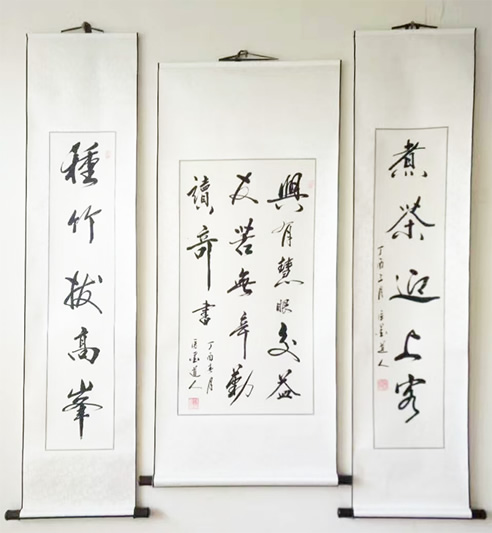 煮茶迎上客
丁酉三月墨道人
興有慧眼交益
友苦無辛勤
讀奇書
丁酉月
墨道人
種竹拔高峯